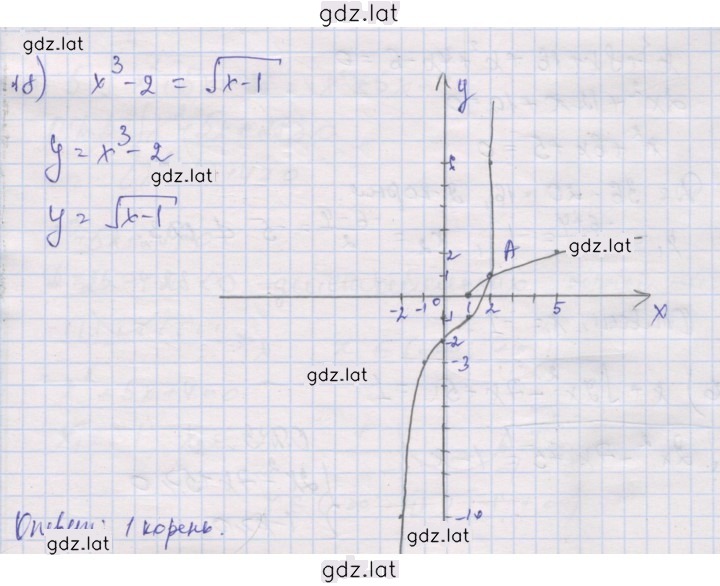 gdz.lat
gdz.lat
18) x³ - 2 = √x-1
y = x³ - 2
gdz.lat
y = √x-1
y
6
2
1
A
gdz.lat
-2 -1 0 1 2 5 x
-1
-2
-3
gdz.lat
-10
Ответ: 1 корень.
gdz.lat
gdz.lat
gdz.lat